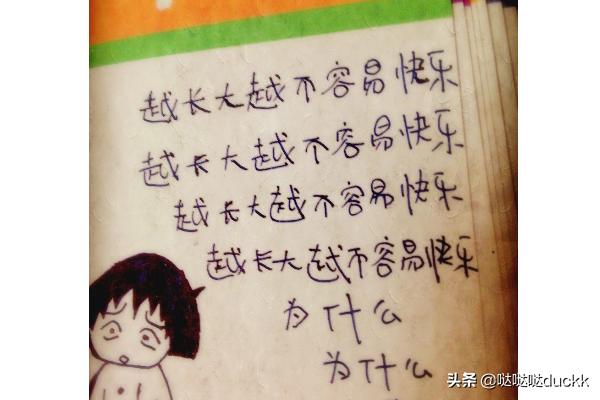 越长大越不容易快乐
越长大越不容易快乐
越长大越不容易快乐
越长大越不容易快乐
为什么
为什么
头条 @哒哒哒duckk